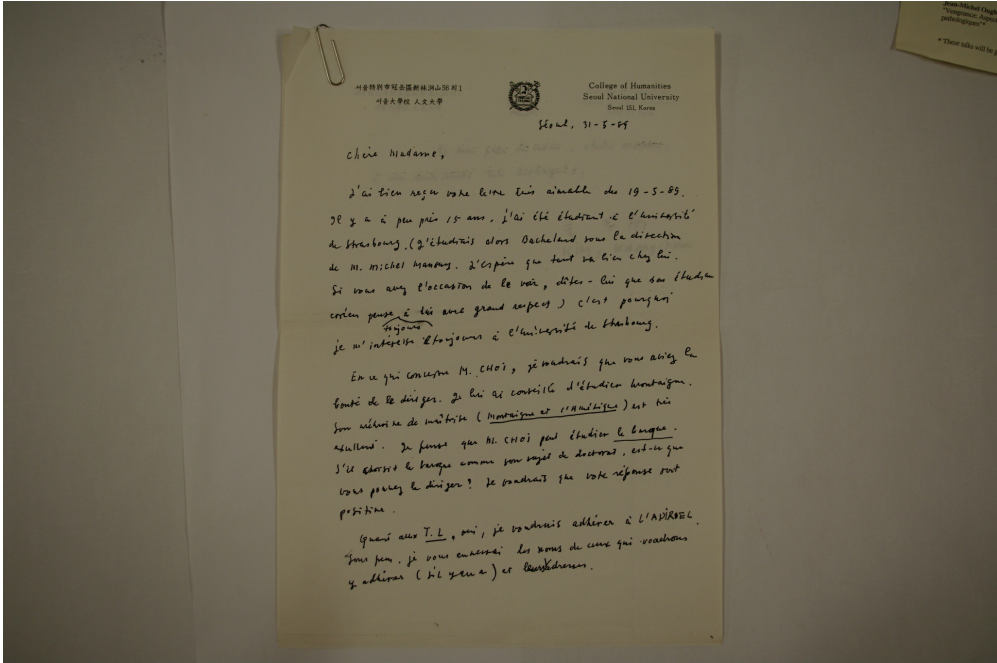 Jean-Michel Ough
"Vengeance: Aspe
pathologiques"*
* These talks will be
서울特別市冠岳區新林洞山56의1
서울大學校 人文大學
College of Humanities
Seoul National University
Seoul 151, Korea
Séoul, 31-5-89
Chère Madame,
J'ai bien reçu votre lettre très aimable du 19-5-89.
Il y a à peu près 15 ans, j'ai été étudiant à l'Université
de Strasbourg. (J'étudiais alors Bachelard sous la direction
de M. Michel Mansuy. J'espère que tout va bien chez lui.
Si vous avez l'occasion de le voir, dites-lui que son étudian
coréen pense à lui avec grand respect) C'est pourquoi
toujours
je m'intéresse toujours à l'Université de Strasbourg.
En ce qui concerne M. CHOI, je voudrais que vous ayiez la
bonté de le diriger. Je lui ai conseillé d'étudier Montaigne.
Son mémoire de maîtrise (Montaigne et l'Amérique) est très
excellent. Je pense que M. CHOI peut étudier le baroque.
S'il choisit le baroque comme son sujet de doctorat, est-ce que
vous pouvez le diriger? Je voudrais que votre réponse soit
positive.
Quant aux T.L, oui, je voudrais adhérer à L'ADIREL.
Sous peu, je vous enverrai les noms de ceux qui voudrons
y adhérer (s'il y en a) et leurs adresses.